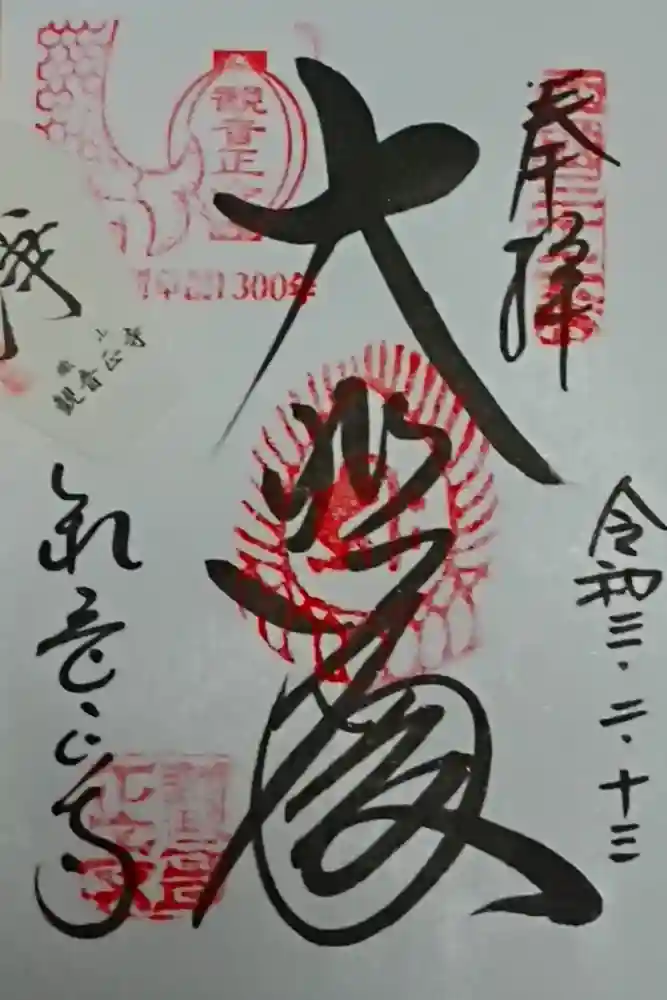 奉拝
令和三・二・十三
大悲殿
觀音正寺
草創1300年
観音正寺
観音正寺